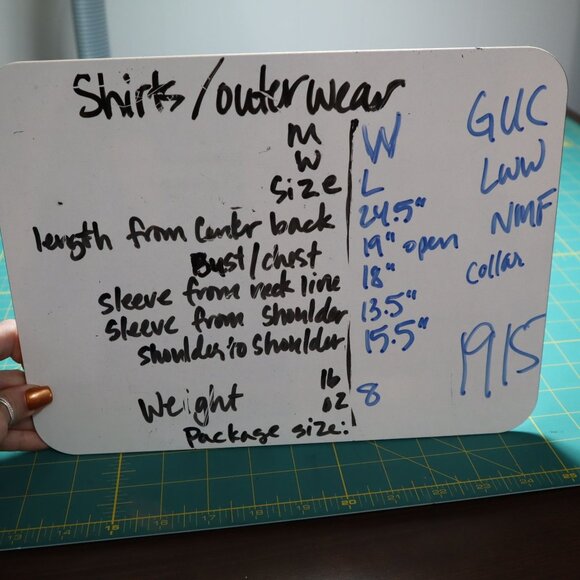 Shirts/outerwear
M
W W
size L
length from Center back 24.5"
Bust/chest 19" open
sleeve from neck line 18"
sleeve from shoulder 13.5"
shoulder to shoulder 15.5"
lb
Weight oz 8
Package size:
GUC
LWW
NMF
Collar
1915
13
15
16
17
18
19
20
21
22
23
24
25